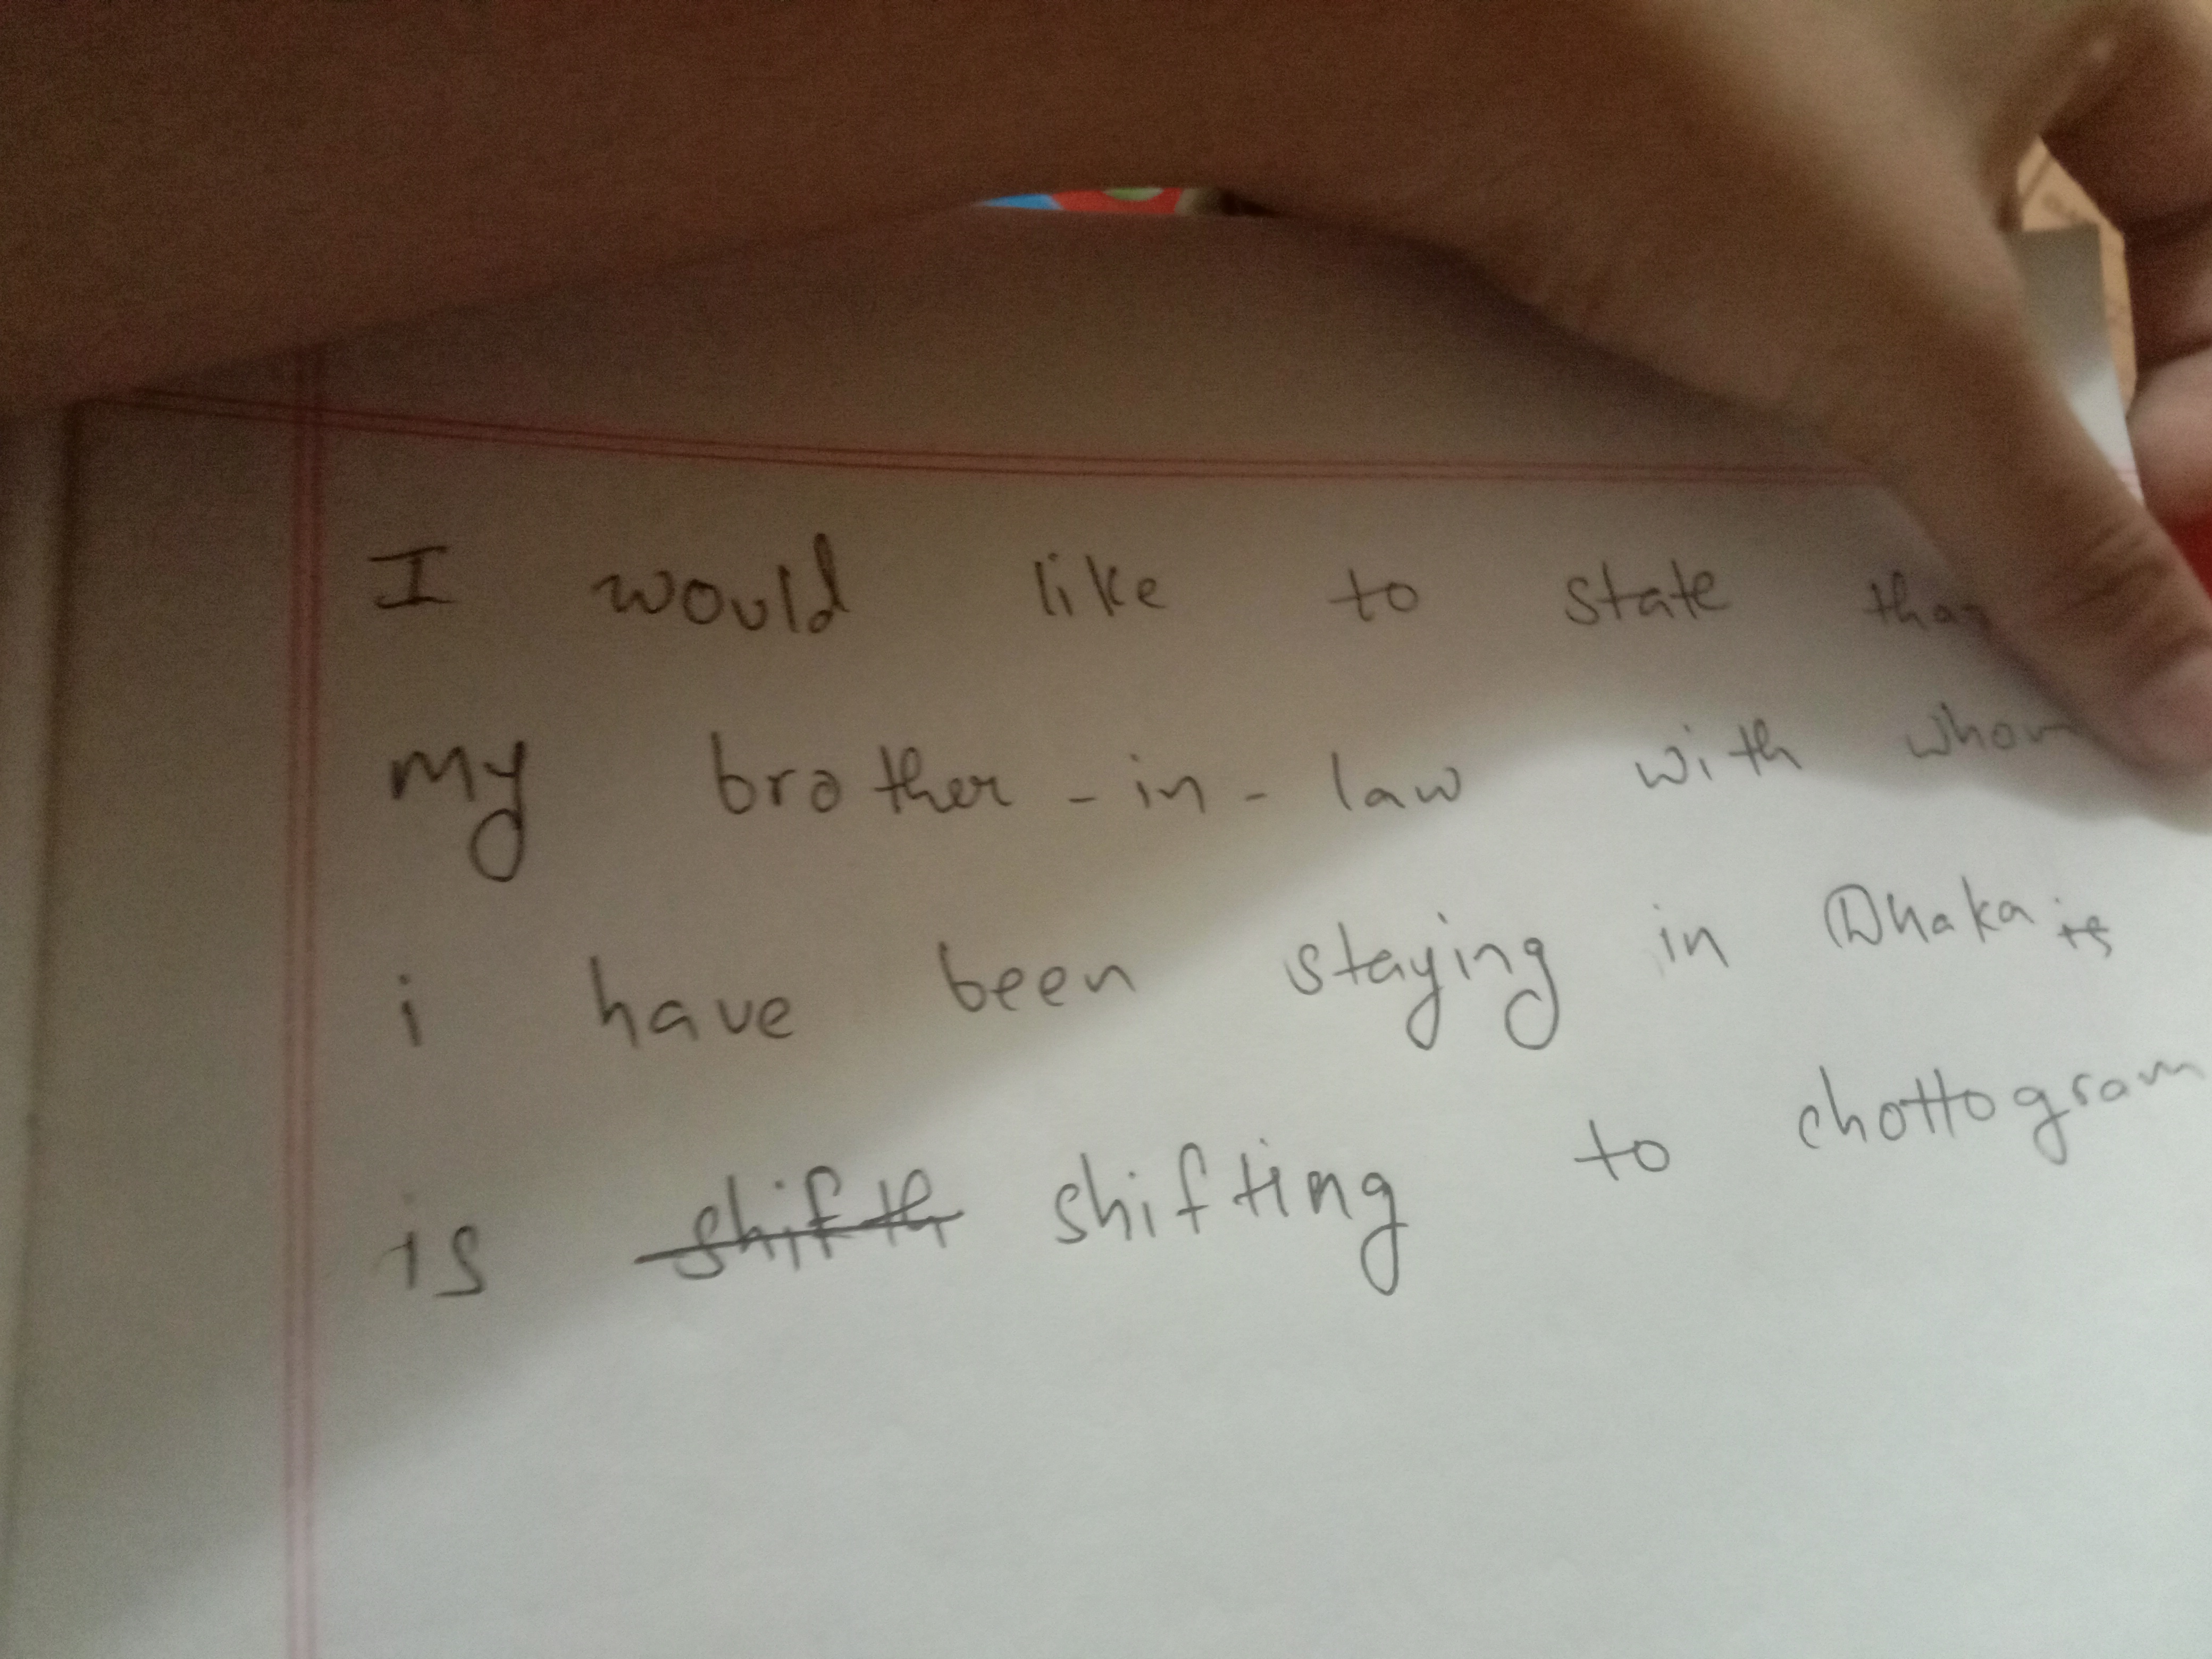 I would like to state
my brother-in-law with whom
i have been staying in Dhaka is
is shifth shifting to chottogram